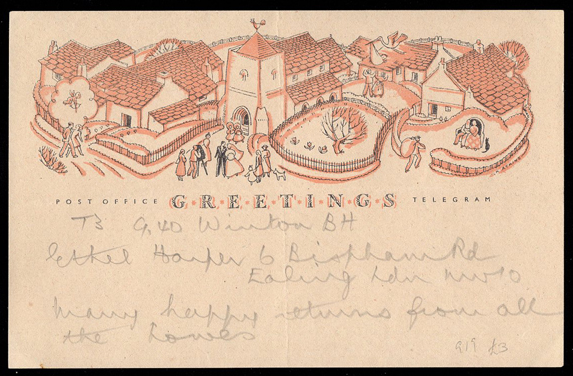 POST OFFICE GREETINGS TELEGRAM
T3 9.40 Winton BH
Ethel Harper 6 Bispham Rd
Ealing Ldn NW10
Many happy returns from all
the Lowes
919 £3